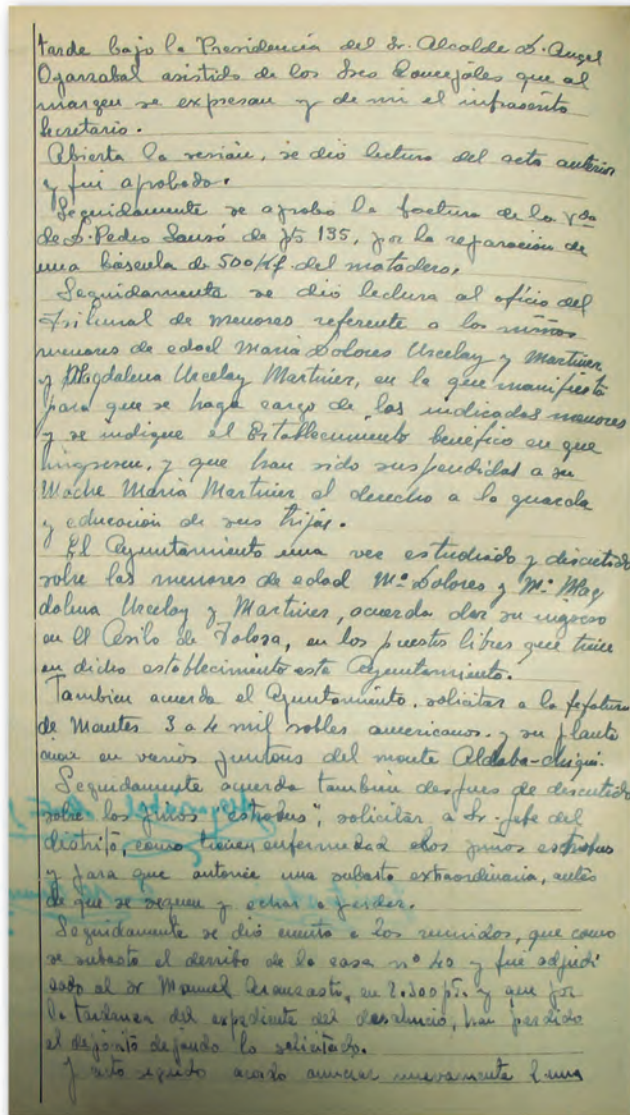 tarde bajo la Presidencia del Sr. Alcalde D. Angel
Ogarzabal asistido de los Sres Concejales que al
margen se expresan y de mi el infrascrito
Secretario.
Abierta la sesión, se dió lectura del acta anterior
y fué aprobado.
Seguidamente se aprobó la factura de la Vda
de D. Pedro Sansó de pts 135, por la reparación de
una báscula de 500 Kg. del matadero.
Seguidamente se dió lectura al oficio del
Tribunal de menores referente a los niños
menores de edad Maria Dolores Urcelay y Martinez
y Magdalena Urcelay Martinez, en la que manifiesta
para que se haga cargo de las indicadas menores
y se indique el Establecimiento benéfico en que
ingresen, y que han sido suspendidas a su
Madre Maria Martinez el derecho a la guarda
y educación de sus hijas.
El Ayuntamiento una vez estudiado y discutido
sobre las menores de edad Mª Dolores y Mª Mag
dalena Urcelay y Martinez, acuerda dar su ingreso
en el Asilo de Tolosa, en los puestos libres que tiene
en dicho establecimiento este Ayuntamiento.
Tambien acuerda el Ayuntamiento, solicitar a la Jefatura
de Montes 3 a 4 mil robles americanos y su planta
ción en varios puntos del monte Aldaba-chiqui.
Seguidamente acuerda tambien despues de discutido
sobre los pinos "estrobus", solicitar a Sr. Jefe del
distrito, como tienen enfermedad elos pinos estrobus
y para que autorice una subasta extraordinaria, antes
de que se sequen y echar a perder.
Seguidamente se dió cuenta a los reunidos, que como
se subastó el derribo de la casa nº 40 y fué adjudi
cado al Sr Manuel Aranzasti, en 2.300 pts. y que por
la tardanza del expediente del desahucio, han perdido
el depósito dejando lo solicitado.
Y acto seguido acordó anunciar nuevamente